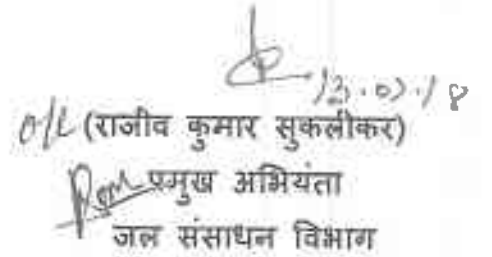 13.07.18
o/c (राजीव कुमार सुकलीकर)
प्रमुख अभियंता
जल संसाधन विभाग